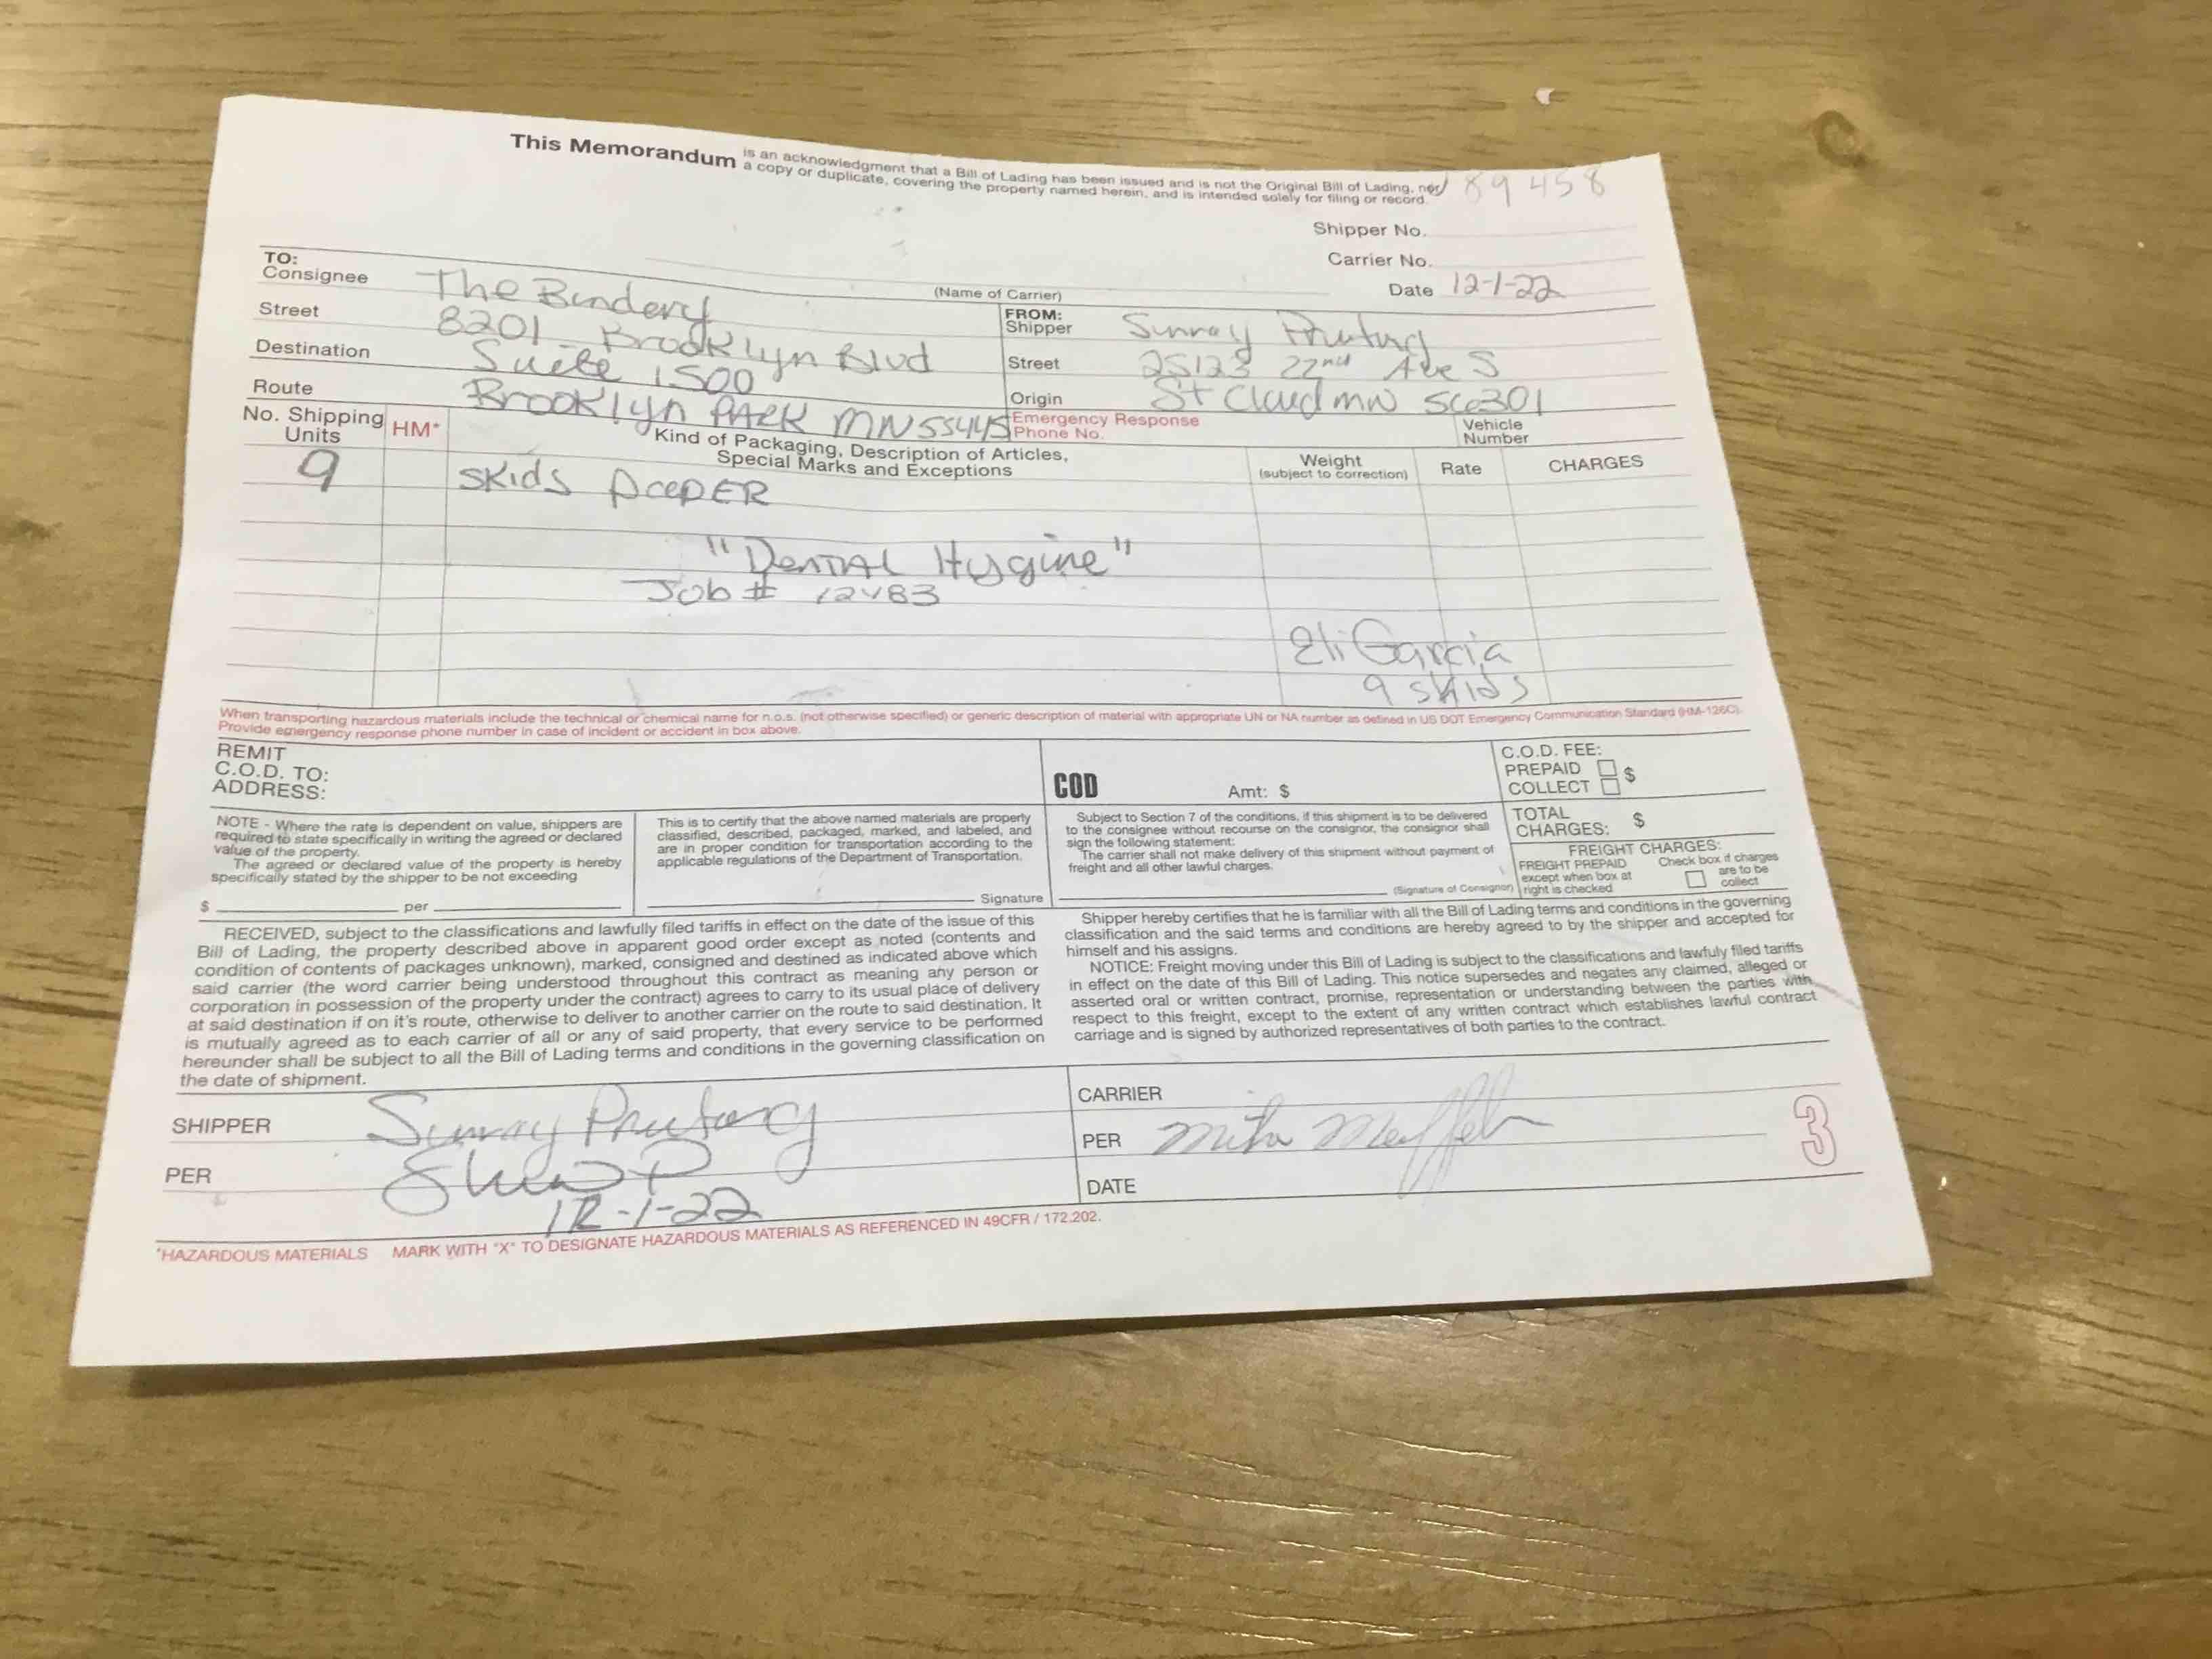 This Memorandum is an acknowledgment that a Bill of Lading has been issued and is not the Original Bill of Lading, nor
a copy or duplicate, covering the property named herein, and is intended solely for filing or record.
89458
Shipper No.
Carrier No.
(Name of Carrier)
Date 12-1-22
TO:
Consignee The Bindery
Street 8201 Brooklyn Blvd
Destination Suite 1500
Route Brooklyn PARK MN 55445
FROM:
Shipper Sunray Printing
Street 25123 22nd Ave S
Origin St Cloud MN 56301
Emergency Response
Phone No.
Vehicle
Number
No. Shipping
Units
HM*
Kind of Packaging, Description of Articles,
Special Marks and Exceptions
Weight
(subject to correction)
Rate
CHARGES
9 Skids PAPER
"Dental Hygine"
Job # 12483
Eli Garcia
9 skids
When transporting hazardous materials include the technical or chemical name for n.o.s. (not otherwise specified) or generic description of material with appropriate UN or NA number as defined in US DOT Emergency Communication Standard (HM-126C).
Provide emergency response phone number in case of incident or accident in box above.
REMIT
C.O.D. TO:
ADDRESS:
COD Amt: $
C.O.D. FEE:
PREPAID
COLLECT $
NOTE - Where the rate is dependent on value, shippers are
required to state specifically in writing the agreed or declared
value of the property.
The agreed or declared value of the property is hereby
specifically stated by the shipper to be not exceeding
$ per
This is to certify that the above named materials are properly
classified, described, packaged, marked, and labeled, and
are in proper condition for transportation according to the
applicable regulations of the Department of Transportation.
Signature
Subject to Section 7 of the conditions, if this shipment is to be delivered
to the consignee without recourse on the consignor, the consignor shall
sign the following statement:
The carrier shall not make delivery of this shipment without payment of
freight and all other lawful charges.
(Signature of Consignor)
TOTAL
CHARGES: $
FREIGHT CHARGES:
FREIGHT PREPAID
except when box at
right is checked
Check box if charges
are to be
collect
RECEIVED, subject to the classifications and lawfully filed tariffs in effect on the date of the issue of this
Bill of Lading, the property described above in apparent good order except as noted (contents and
condition of contents of packages unknown), marked, consigned and destined as indicated above which
said carrier (the word carrier being understood throughout this contract as meaning any person or
corporation in possession of the property under the contract) agrees to carry to its usual place of delivery
at said destination if on it's route, otherwise to deliver to another carrier on the route to said destination. It
is mutually agreed as to each carrier of all or any of said property, that every service to be performed
hereunder shall be subject to all the Bill of Lading terms and conditions in the governing classification on
the date of shipment.
Shipper hereby certifies that he is familiar with all the Bill of Lading terms and conditions in the governing
classification and the said terms and conditions are hereby agreed to by the shipper and accepted for
himself and his assigns.
NOTICE: Freight moving under this Bill of Lading is subject to the classifications and lawfuly filed tariffs
in effect on the date of this Bill of Lading. This notice supersedes and negates any claimed, alleged or
asserted oral or written contract, promise, representation or understanding between the parties with
respect to this freight, except to the extent of any written contract which establishes lawful contract
carriage and is signed by authorized representatives of both parties to the contract.
SHIPPER Sunray Printing
PER
12-1-22
CARRIER
PER
DATE
3
*HAZARDOUS MATERIALS MARK WITH "X" TO DESIGNATE HAZARDOUS MATERIALS AS REFERENCED IN 49CFR / 172.202.